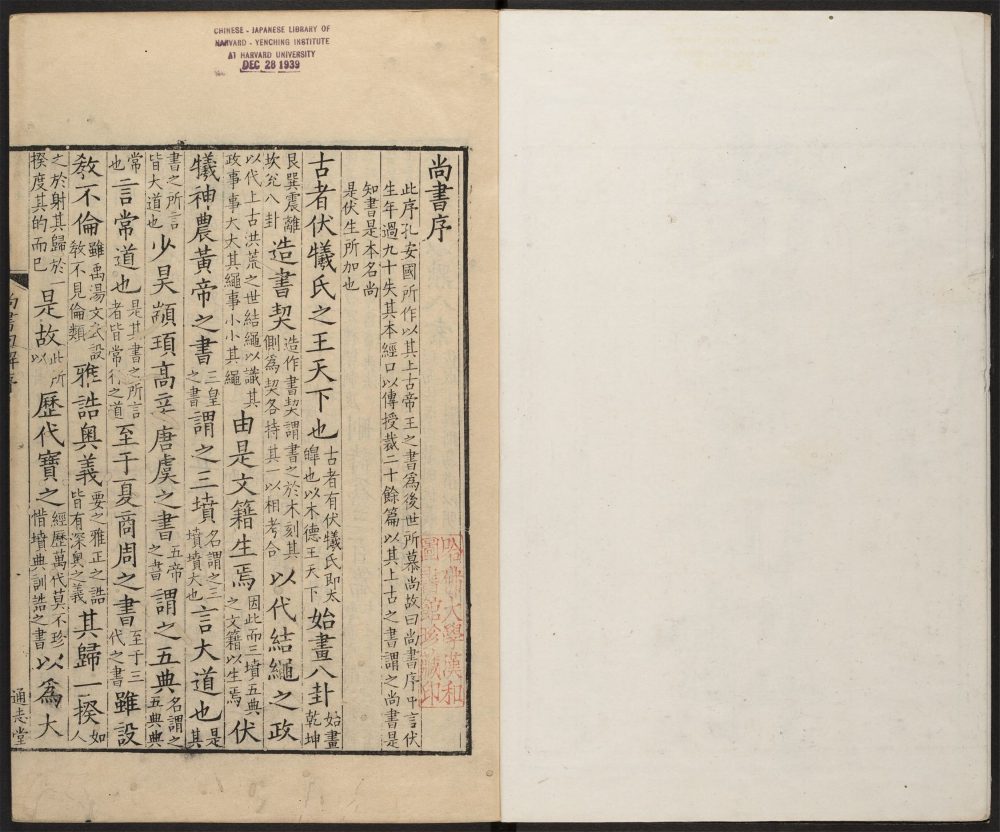 CHINESE - JAPANESE LIBRARY OF
HARVARD - YENCHING INSTITUTE
AT HARVARD UNIVERSITY
DEC 28 1939
尚書序
此序孔安國所作以其上古帝王之書爲後世所慕尚故曰尚書序中言伏
生年過九十失其本經口以傳授裁二十餘篇以其上古之書謂之尚書是
知書是本名尚
是伏生所加也
古者伏犧氏之王天下也古者有伏犧氏即太皥也以木德王天下始畫八卦始畫乾坤
艮巽震離坎兊八卦造書契造作書契謂書之於木刻其側爲契各持其一以相考合以代結繩之政
以代上古洪荒之世結繩以識其政事事大大其繩事小小其繩由是文籍生焉因此而三墳五典之文籍以生焉伏
犧神農黃帝之書三皇之書謂之三墳名謂之三墳墳大也言大道也是其
書之所言皆大道也少昊顓頊高辛唐虞之書五帝之書謂之五典名謂之五典典
常也言常道也是其書之所言者皆常行之道至于夏商周之書至于三代之書雖設
教不倫雖禹湯文武設教不見倫類雅誥奥義要之雅正之誥皆有深奥之義其歸一揆如人
之於射其歸於一揆度其的而已是故此所以歷代寶之經歷萬代莫不珍惜墳典訓誥之書以爲大
通志堂
哈佛大學漢和
圖書館珍藏印